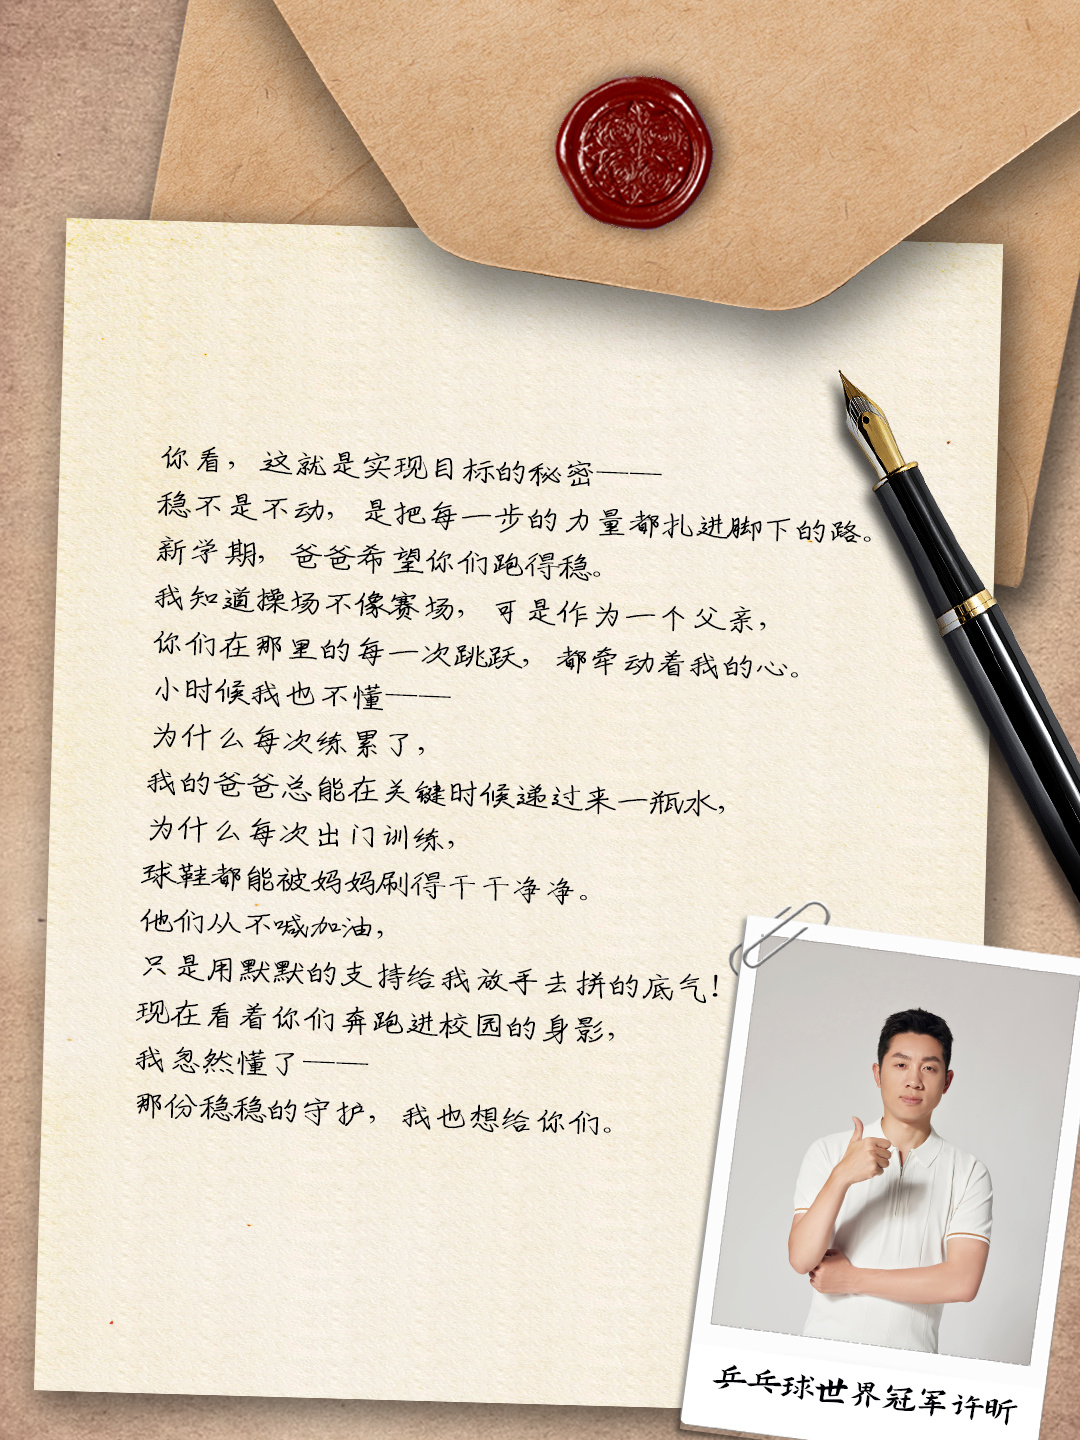 你看，这就是实现目标的秘密——
稳不是不动，是把每一步的力量都扎进脚下的路。
新学期，爸爸希望你们跑得稳。
我知道操场不像赛场，可是作为一个父亲，
你们在那里的每一次跳跃，都牵动着我的心。
小时候我也不懂——
为什么每次练累了，
我的爸爸总能在关键时候递过来一瓶水，
为什么每次出门训练，
球鞋都能被妈妈刷得干干净净。
他们从不喊加油，
只是用默默的支持给我放手去拼的底气！
现在看着你们奔跑进校园的身影，
我忽然懂了——
那份稳稳的守护，我也想给你们。
乒乓球世界冠军许昕